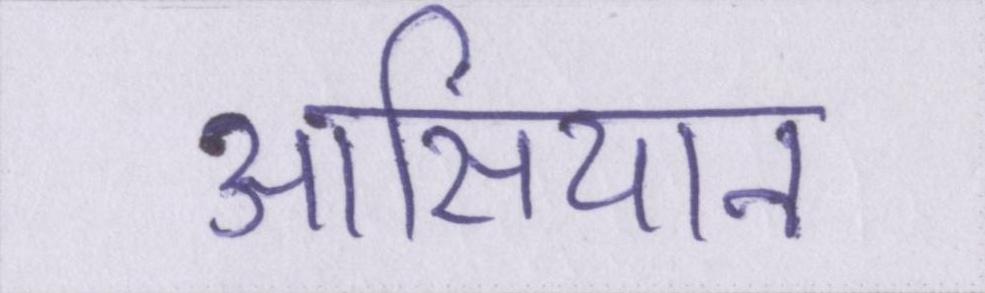 आसिंयान